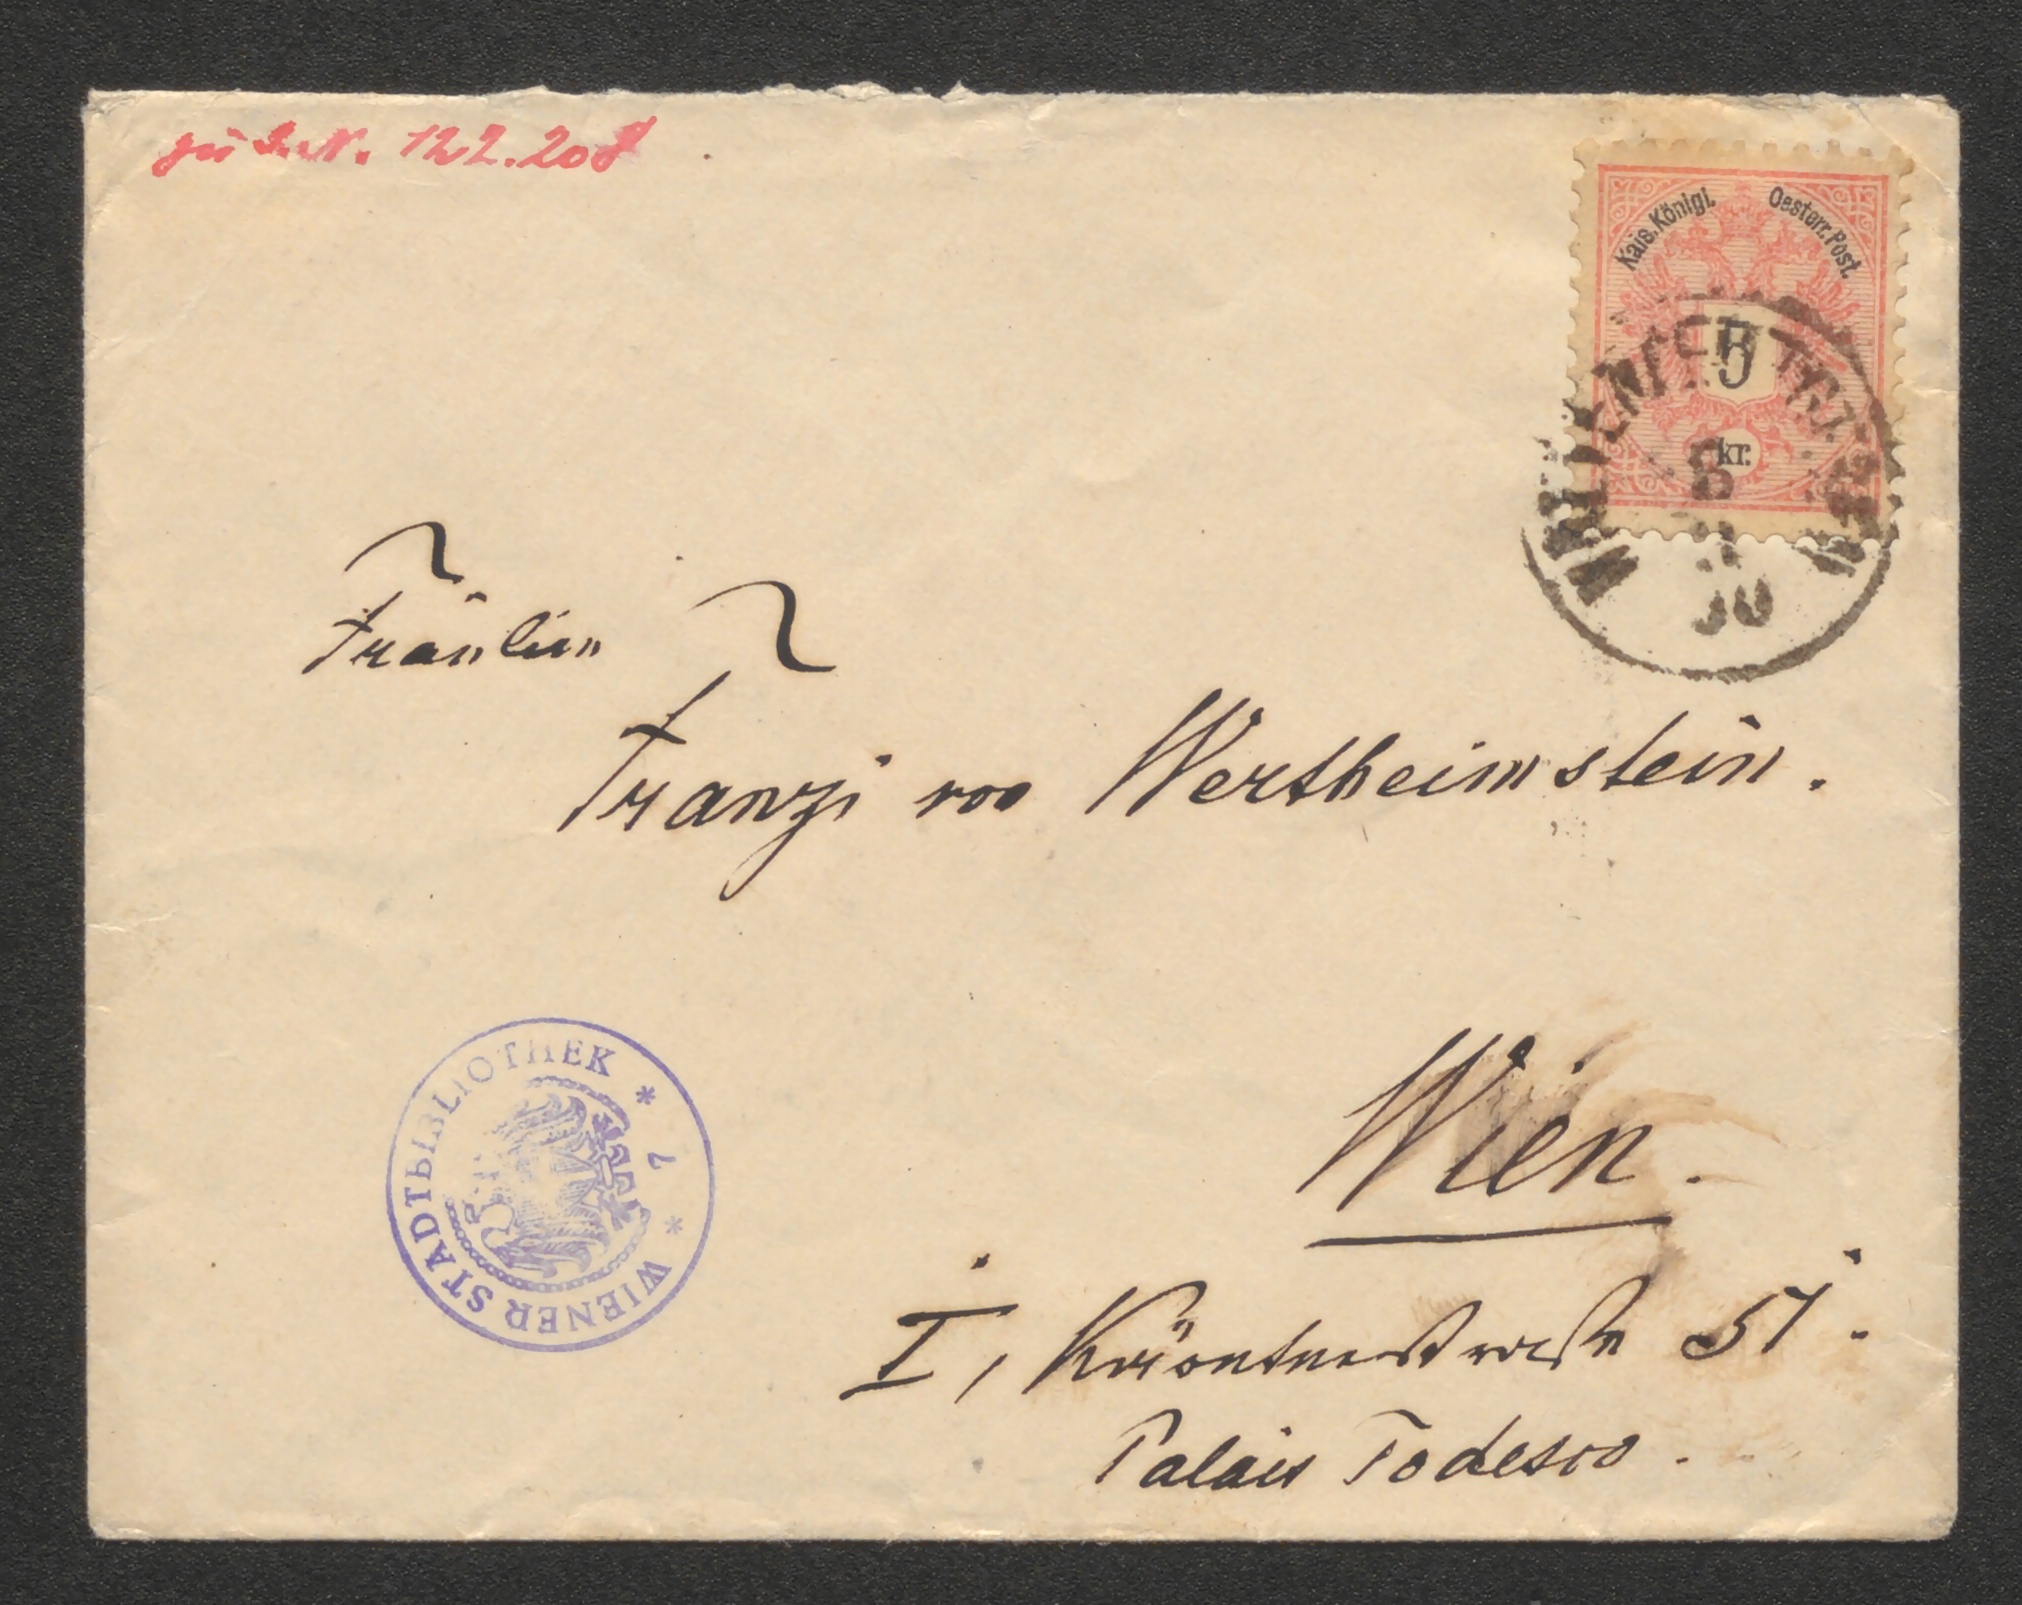 zu I.N. 122.208
Kais. Königl. Oesterr. Post.
5
kr.
Fräulein
Franzi von Wertheimstein.
Wien.
I, Kärntnerstrasse 51.
Palais Todesco.
WIENER STADTBIBLIOTHEK * 7 *